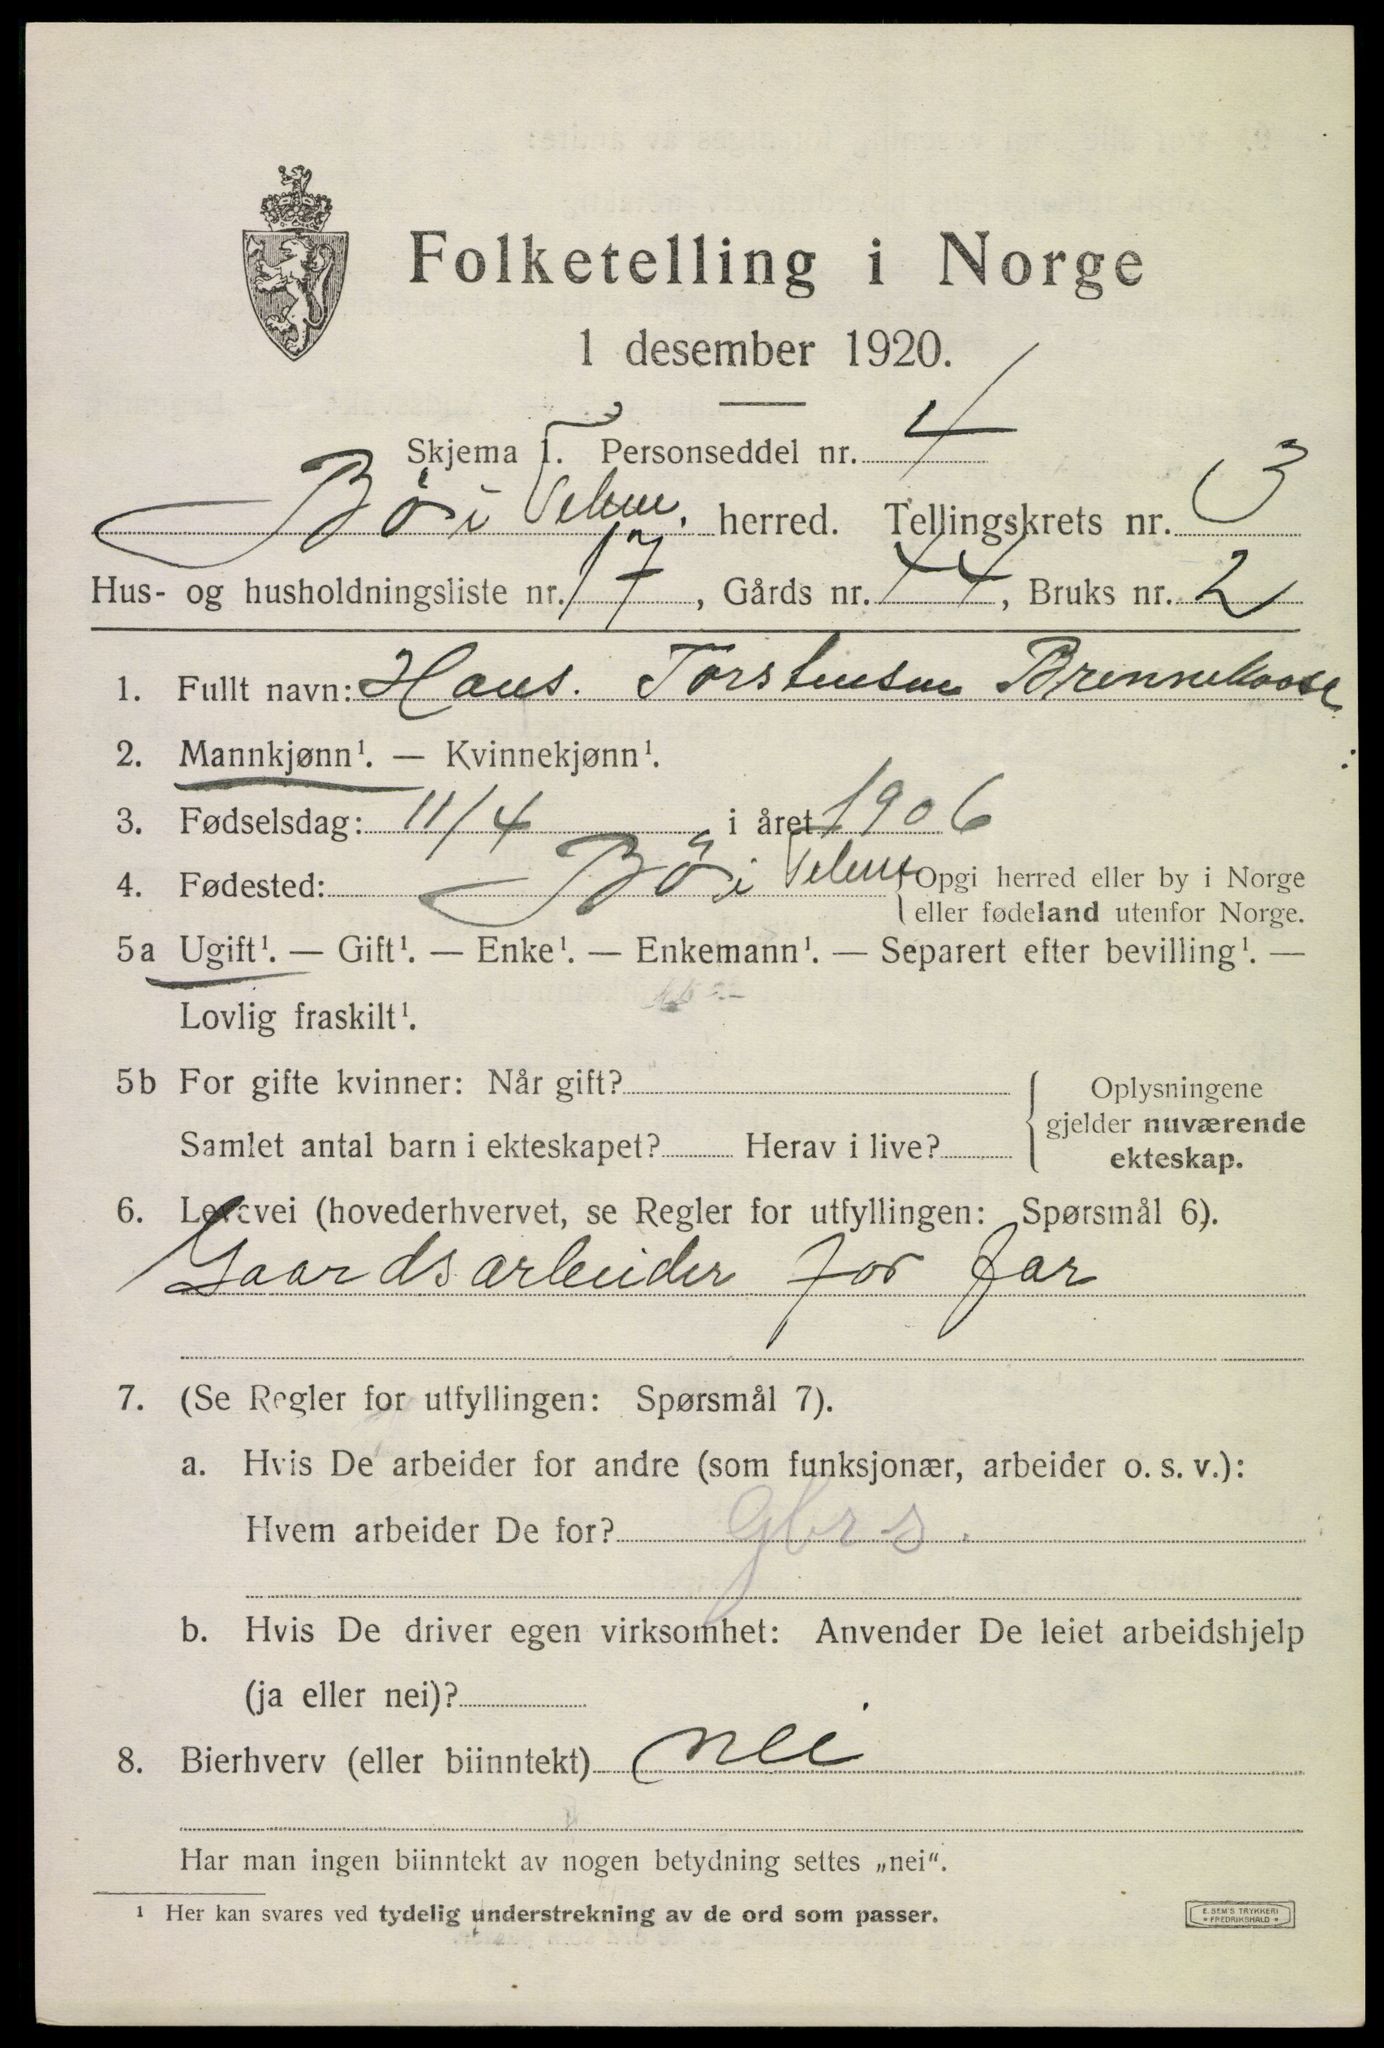 Folketelling i Norge
1 desember 1920.
Skjema 1. Personseddel nr. 4
Bø i Telem. herred. Tellingskrets nr. 3
Hus- og husholdningsliste nr. 17, Gårds nr. 44, Bruks nr. 2
1. Fullt navn: Hans. Torstensen
2. Mannkjønn¹. — Kvinnekjønn¹.
3. Fødselsdag: 11/4 i året 1906
4. Fødested: Bø i Telem { Opgi herred eller by i Norge
eller fødeland utenfor Norge.
5a Ugift¹. — Gift¹. — Enke¹. — Enkemann¹. — Separert efter bevilling¹. —
Lovlig fraskilt¹.
5b For gifte kvinner: Når gift?
Samlet antal barn i ekteskapet? Herav i live?
Oplysningene
gjelder nuværende
ekteskap.
6. Levevei (hovederhvervet, se Regler for utfyllingen: Spørsmål 6).
Gaardsarbeider for far
7. (Se Regler for utfyllingen: Spørsmål 7).
a. Hvis De arbeider for andre (som funksjonær, arbeider o. s. v.):
Hvem arbeider De for? Gbrs.
b. Hvis De driver egen virksomhet: Anvender De leiet arbeidshjelp
(ja eller nei)?
8. Bierhverv (eller biinntekt) nei
Har man ingen biinntekt av nogen betydning settes „nei“.
¹ Her kan svares ved tydelig understrekning av de ord som passer.
E. SEM'S TRYKKERI
FREDRIKSHALD